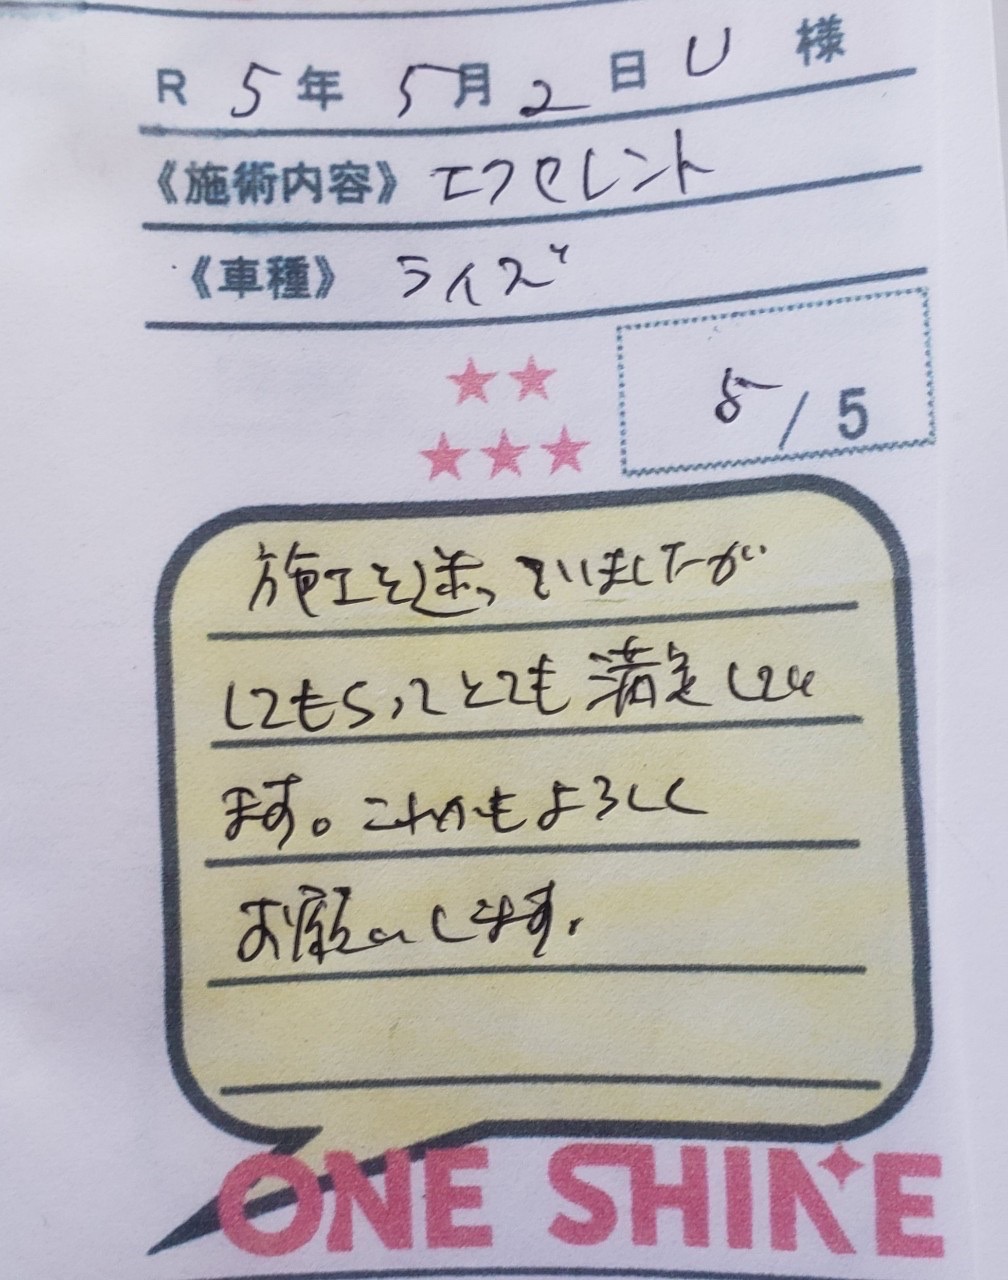 R 5年 5月 2日 U 様
《施術内容》 エクセレント
《車種》 ライズ
5/5
施工を迷っていましたが
してもらってとても満足してい
ます。これからもよろしく
お願いします。
ONE SHINE